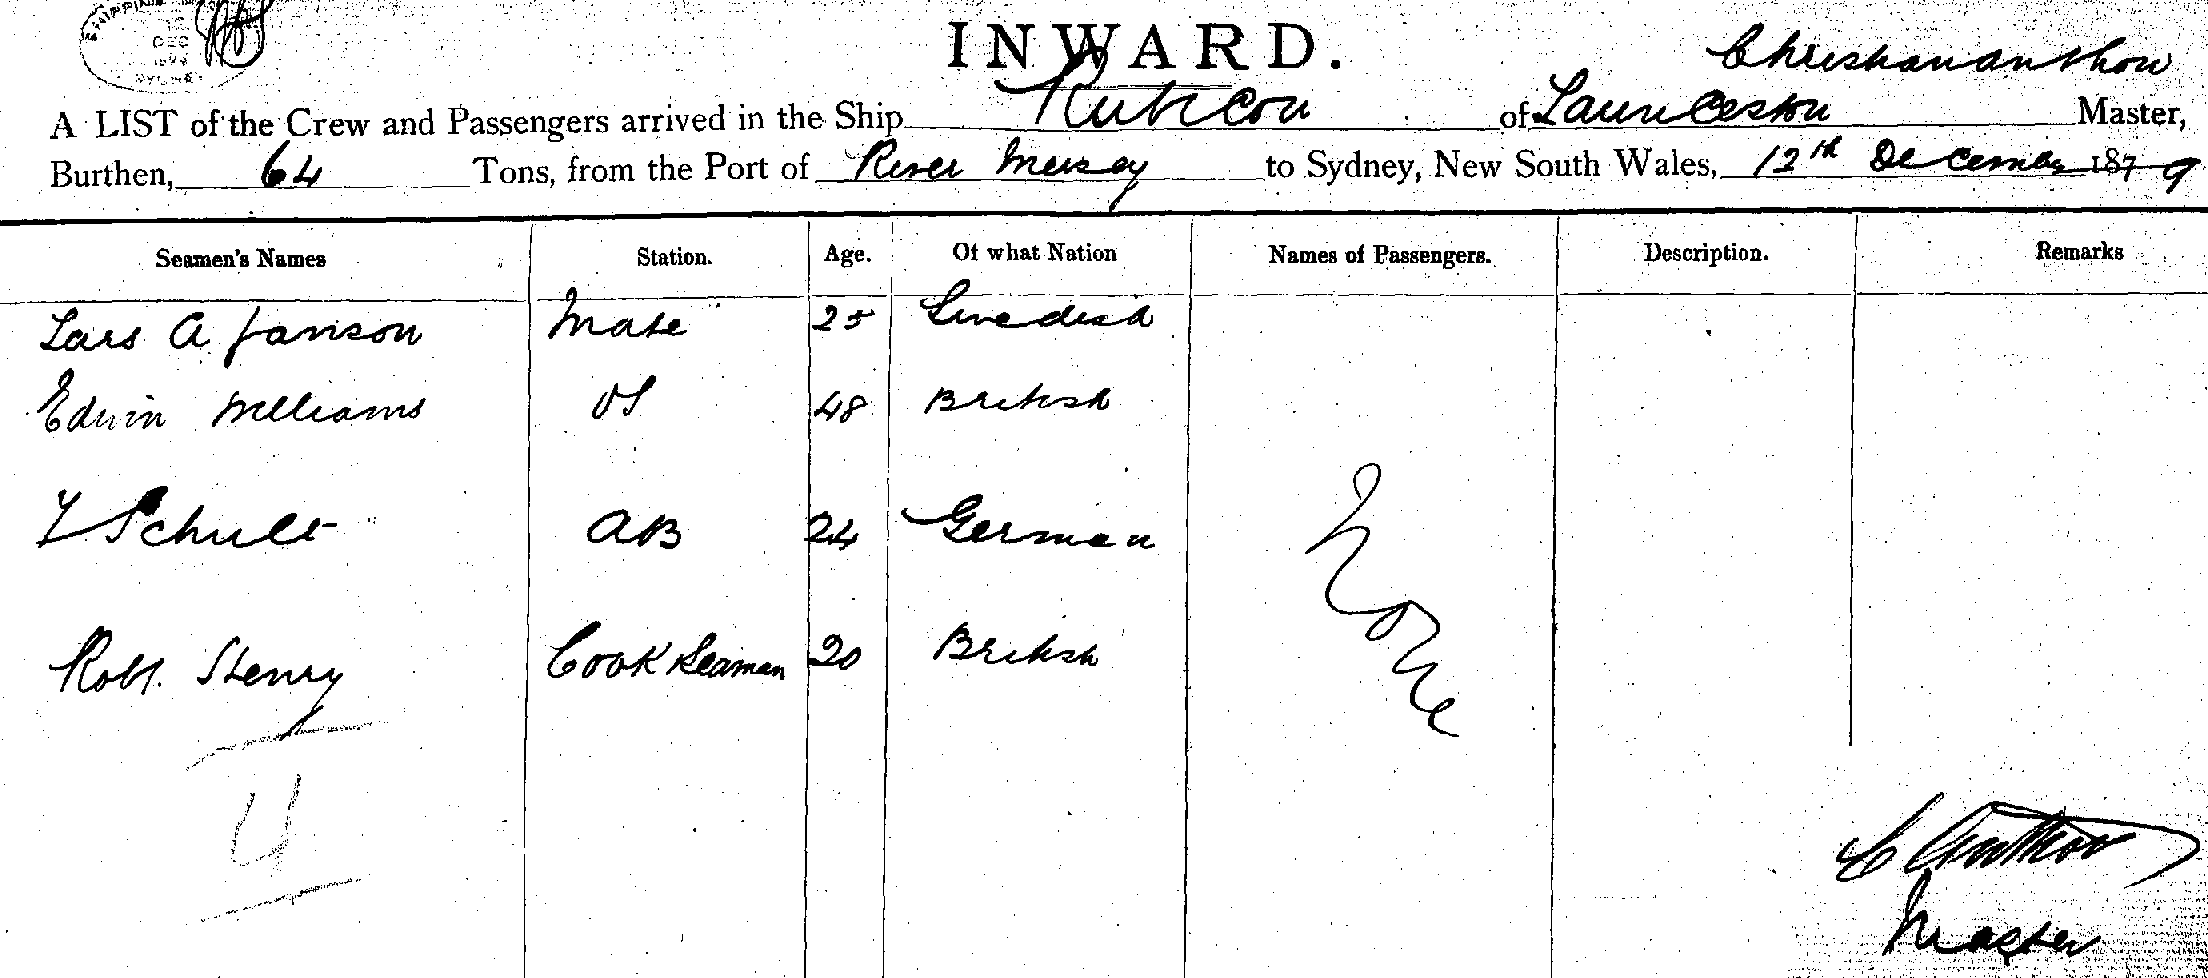 DEC
SYDNEY
INWARD.
Christian Anthon
A LIST of the Crew and Passengers arrived in the Ship Rubicon of Launceston Master,
Burthen, 64 Tons, from the Port of River Mersey to Sydney, New South Wales, 12th December 1879
Seamen's Names Station. Age. Of what Nation Names of Passengers. Description. Remarks
Lars A Janson Mate 25 Swedish
Edwin Williams OS 48 British
Schult AB 24 German
None
Robt. Henry Cook Seaman 20 British
4
C Anthon
Master